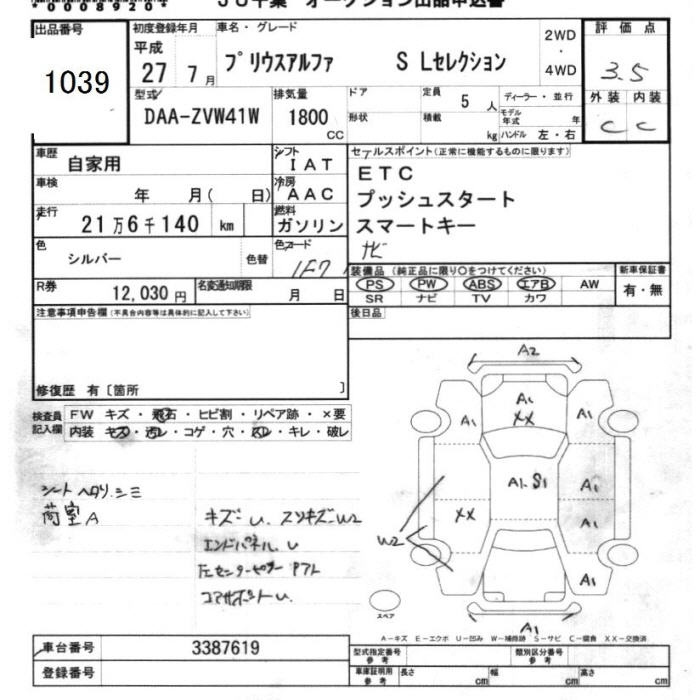 *00089204* JU千葉 オークション出品申込書
出品番号 初度登録年月 車名・グレード 2WD・4WD 評価点
1039 平成 27 7月 プリウスアルファ S Lセレクション 3.5
型式 排気量 ドア 定員 5人 ディーラー・並行 外装 内装
DAA-ZVW41W 1800 CC 形状 積載 kg モデル年式 年 C C
ハンドル 左・右
車歴 自家用 シフト IAT セールスポイント(正常に機能するものに限ります)
車検 年 月( 日) 冷房 AAC ETC
走行 21万6千140 km 燃料 ガソリン プッシュスタート
スマートキー
色 シルバー 色替 色コード 1F7 ナビ
装備品(純正品に限り○をつけてください) 新車保証書
R券 12,030円 名変通知期限 月 日 PS PW ABS エアB AW 有・無
SR ナビ TV カワ
注意事項申告欄(不具合内容等は具体的に記入して下さい) 後日品
修復歴 有〔箇所 〕
検査員記入欄 FW キズ・飛石・ヒビ割・リペア跡・×要
内装 キズ・汚レ・コゲ・穴・スレ・キレ・破レ
シートヘタリ.シミ
荷室A
キズ U. スリキズ W2
エンドパネル U
左センターピラー
コアサポート U.
A2
A1 A1 XX A1
A1.S1 A1
XX A1
W2
A1
A1
スペア
A-キズ E-エクボ U-凹み W-補修跡 S-サビ C-腐食 XX-交換済
車台番号 3387619 型式指定番号 参考 類別区分番号 参考
登録番号 車庫証明用 参考 長さ cm 幅 cm 高さ cm